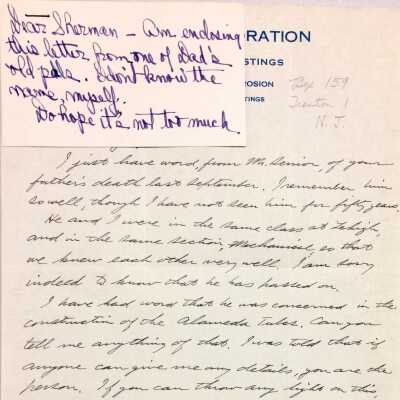 Dear Sherman - Am enclosing
this letter from one of Dad's
old pals. I don't know the
name, myself.
Do hope it's not too much.
ORATION
STINGS
POSION
STINGS
Box 159
Trenton 1
N. J.
I just have word, from Mr. Senior, of your
father's death last September. I remember him
so well, though I have not seen him for fifty years.
He and I were in the same class at Lehigh,
and in the same section, Mechanical, so that
we knew each other very well. I am sorry
indeed to know that he has passed on.
I have had word that he was concerned in the
construction of the Alameda Tubes. Can you
tell me anything of that. I was told that if
anyone can give me any details, you are the
person. If you can throw any light on this,